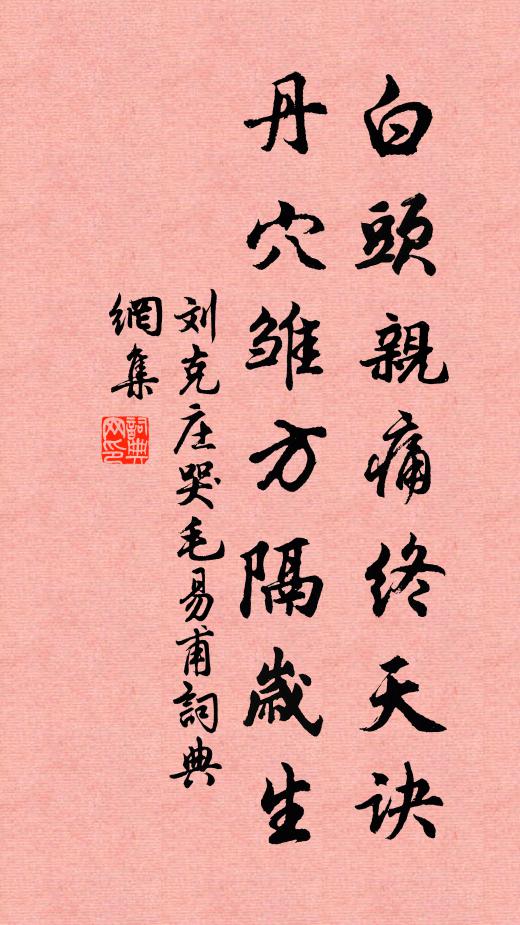 白頭親痛終天訣
丹穴雏方隔歲生
刘克庄哭毛易甫詞典
網集
詞典網印